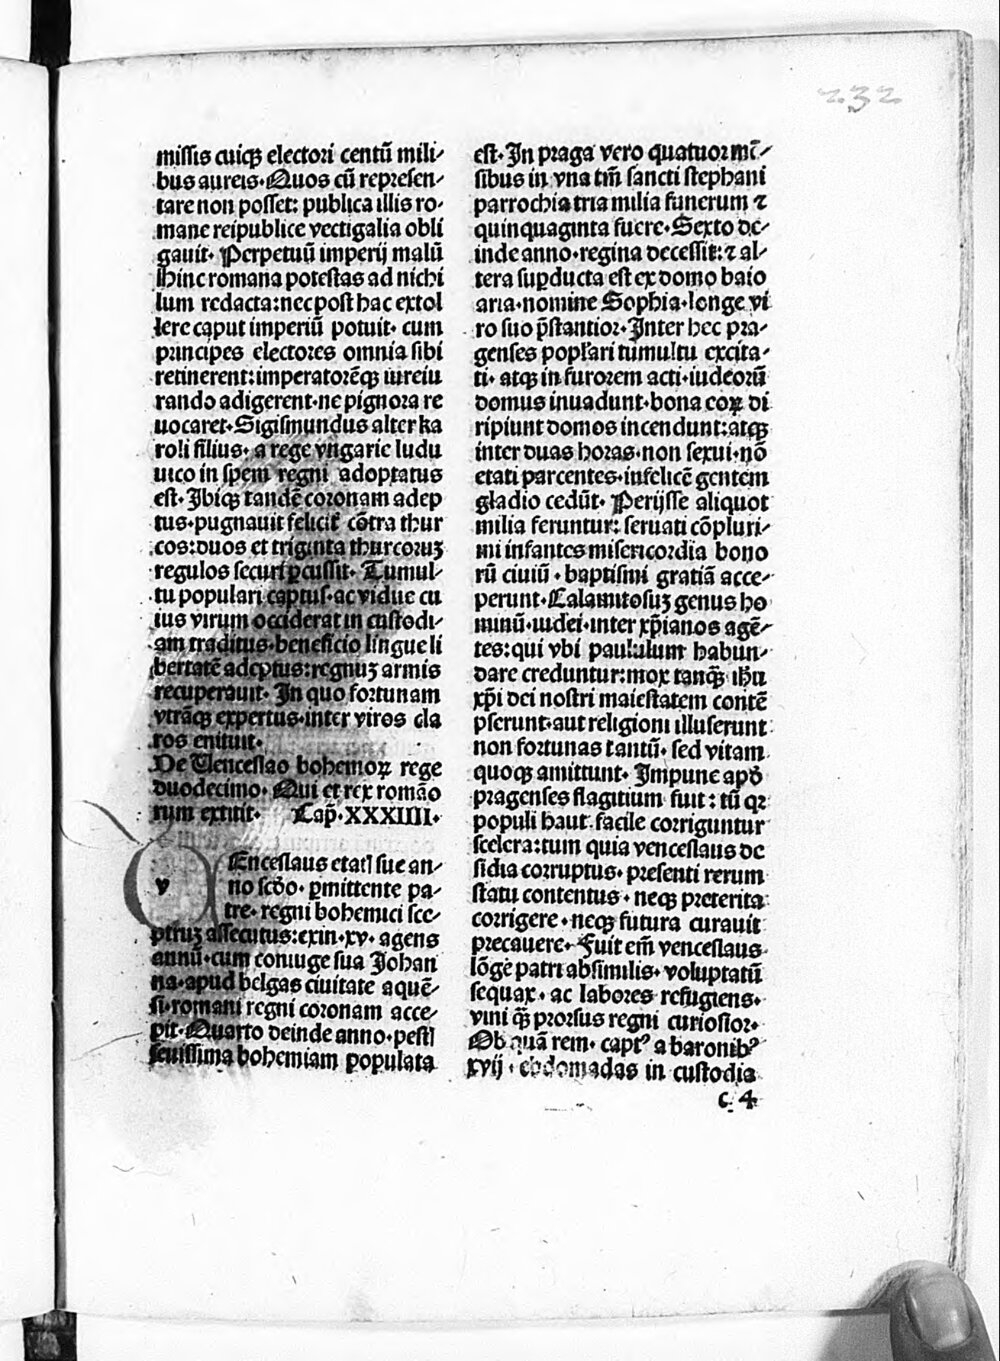 232
missis cuiqꝫ electori centū mili⸗
bus aureis·Quos cū represen⸗
tare non posset: publica illis ro⸗
mane reipublice vectigalia obli
gauit· Perpetuū imperij malū
Hinc romana potestas ad nichi
lum redacta:nec post hac extol
lere caput imperiū potuit· cum
principes electores omnia sibi
retinerent:imperatorēqꝫ iureiu
rando adigerent·ne pignora re
uocaret·Sigismundus alter ka
roli filius· a rege vngarie ludu
uico in spem regni adoptatus
est· Ibiqꝫ tandē coronam adep
tus·pugnauit felicit̄ cōtra thur
cos:duos et triginta thurcoruꝫ
regulos securi ꝑcussit· Tumul⸗
tu populari captus·ac vidue cu
ius virum occiderat in custodi⸗
am traditus·beneficio lingue li
bertatē adeptus:regnuꝫ armis
recuperauit· In quo fortunam
vtrāqꝫ expertus·inter viros cla
ros enituit·
De Uenceslao bohemoꝝ rege
duodecimo· Qui et rex romāo
rum extitit· Cap̄·XXXIIII·
v
Enceslaus etatꝭ sue an⸗
no scḋo· ꝑmittente pa⸗
tre· regni bohemici sce⸗
ptruꝫ assecutus:exin·xv· agens
annū·cum coniuge sua Johan
na·apud belgas ciuitate aquē⸗
si·romani regni coronam acce⸗
pit·Quarto deinde anno·pestꝭ
seuissima bohemiam populata
est·In praga vero quatuor mē⸗
sibus in vna tm̄ sancti stephani
parrochia tria milia funerum ⁊
quinquaginta fuere·Sexto de⸗
inde anno·regina decessit:⁊ al⸗
tera suꝑducta est ex domo baio
aria·nomine Sophia·longe vi
ro suo p̄stantior·Inter hec pra⸗
genses popl̄ari tumultu excita⸗
ti· atqꝫ in furorem acti·iudeorū
domus inuadunt·bona eoꝝ di
ripiunt domos incendunt:atqꝫ
inter duas horas·non sexui·nō
etati parcentes·infelicē gentem
gladio cedūt· Perijsse aliquot
milia feruntur: seruati cōpluri⸗
mi infantes misericordia bono
rū ciuiū · baptismi gratiā acce⸗
perunt·Calamitosuꝫ genus ho
minū·iudei·inter xp̄ianos agē⸗
tes:qui vbi paululum habun⸗
dare creduntur:mox tanqꝫ̄ ihū
xp̄i dei nostri maiestatem contē
pserunt·aut religioni illuserunt
non fortunas tantū· sed vitam
quoqꝫ amittunt· Impune apḋ
pragenses flagitium fuit: tū qꝛ
populi haut facile corriguntur
scelera:tum quia venceslaus de
sidia corruptus· presenti rerum
statu contentus · neqꝫ preterita
corrigere · neqꝫ futura curauit
precauere· Fuit em̄ venceslaus
lōge patri absimilis· voluptatū
sequax· ac labores refugiens·
vini qꝫ̄ prorsus regni curiosior·
Ob quā rem· captꝰ a baronibꝰ
xvij · ebdomadas in custodia
c 4